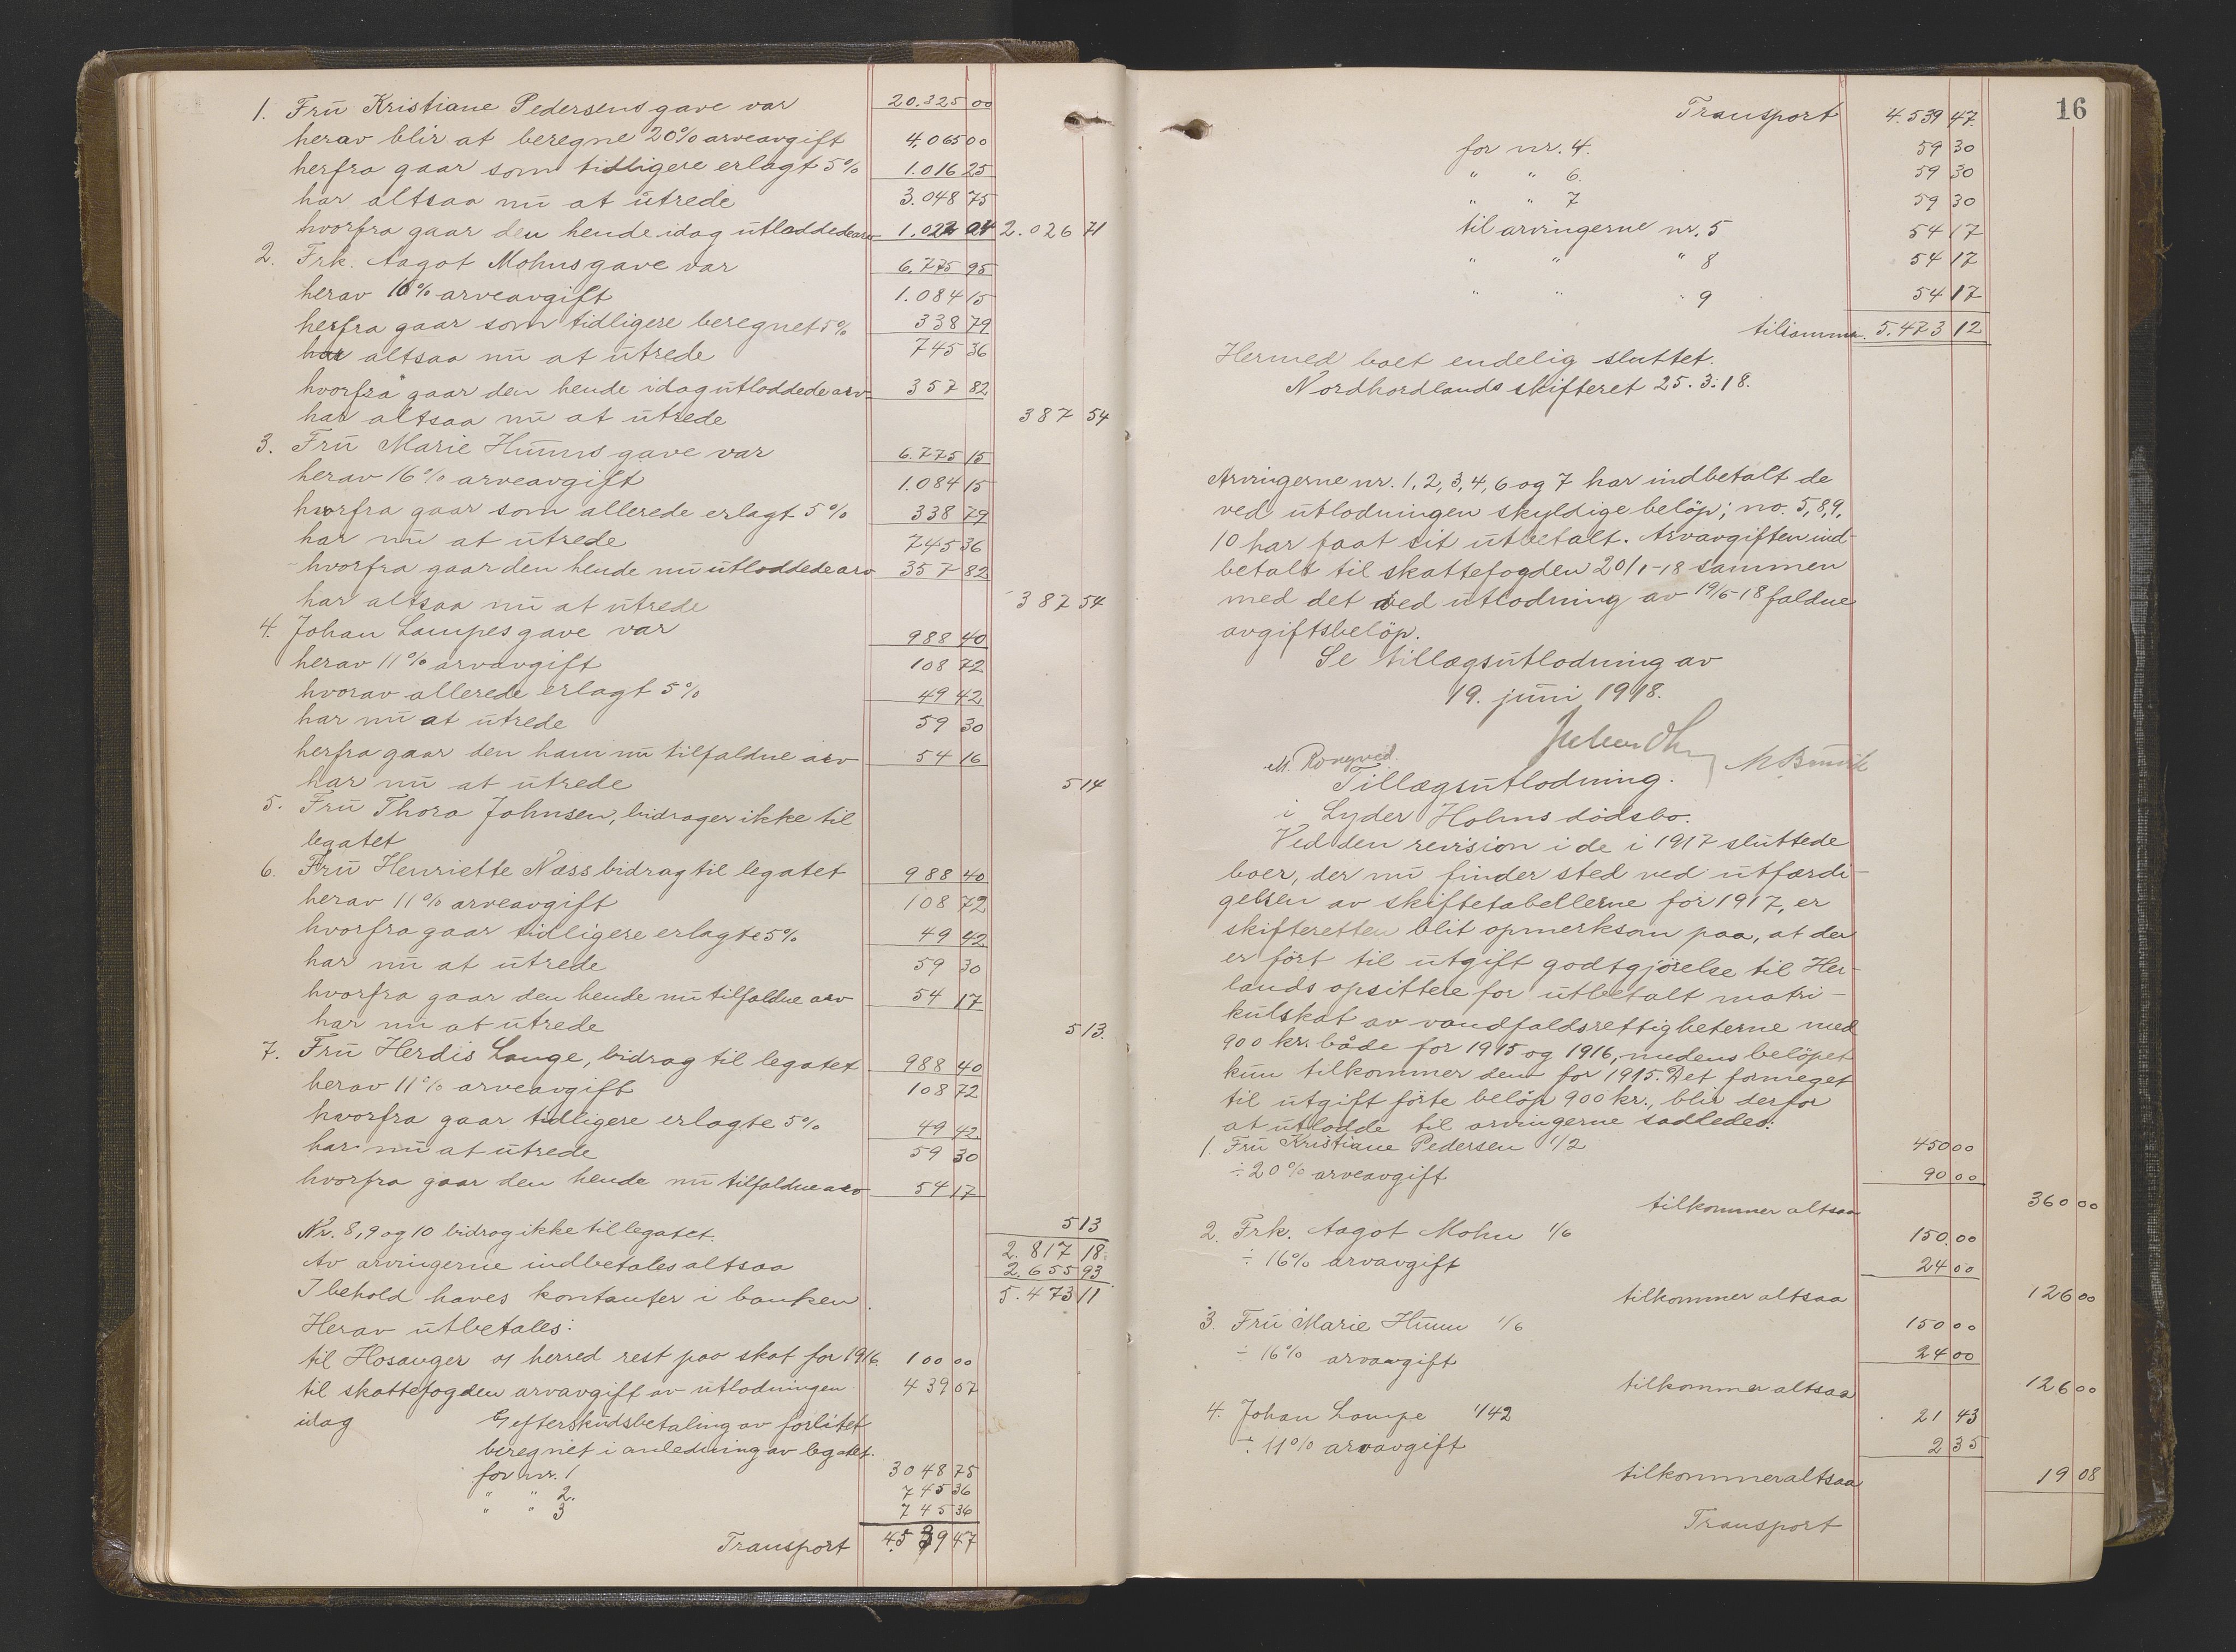 1. Frū Kristiane Pedersens gave var 20.325 00
herav blir at beregne 20% arveavgift 4.065 00
herfra gaar som tidligere erlagt 5% 1.016 25
har altsaa nū at ūtrede 3.048 75
hvorfra gaar den hende idag ūtloddede arv 1.022 04 2.026 71
2. Frk. Aagot Mohns gave var 6.775 95
herav 16% arveavgift 1.084 15
herfra gaar som tidligere beregnet 5% 338 79
har altsaa nū at ūtrede 745 36
hvorfra gaar den hende idag ūtloddede arv 357 82
har altsaa nū at ūtrede 387 54
3. Frū Marie Hūuns gave var 6.775 15
herav 16% arveavgift 1.084 15
hvorfra gaar som allerede erlagt 5% 338 79
har nū at ūtrede 745 36
hvorfra gaar den hende nū ūtloddede arv 357 82
har altsaa nū at ūtrede 387 54
4. Johan Lampes gave var 988 40
herav 11% arvavgift 108 72
hvorav allerede erlagt 5% 49 42
har nū at ūtrede 59 30
herfra gaar den ham nū tilfaldne arv 54 16
har nū at ūtrede 5 14
5. Frū Thora Johnsen, bidrager ikke til
legatet
6. Frū Henriette Næss bidrag til legatet 988 40
herav 11% arveavgift 108 72
hvorfra gaar tidligere erlagte 5% 49 42
har nū at ūtrede 59 30
hvorfra gaar den hende nū tilfaldne arv 54 17
har nū at ūtrede 5 13.
7. Frū Herdis Lange, bidrag til legatet 988 40
herav 11% arveavgift 108 72
hvorfra gaar tidligere erlagte 5% 49 42
har nū at ūtrede 59 30
hvorfra gaar den hende nū tilfaldne arv 54 17
5 13
Nr. 8, 9 og 10 bidrog ikke til legatet.
Av arvingerne indbetales altsaa 2.817 18
I behold haves kontanter i banken. 2.655 93
5.473 11
Herav ūtbetales:
til Hosanger og herred rest paa skat for 1916 100 00
til skattefogden arvavgift av ūtlodningen 439 07
idag
efterskūdsbetaling av forlitet
beregnet i anledning av legatet.
for nr. 1 3048 75
" " 2. 745 36
" " 3 745 36
Transport 4.539 47
16
Transport 4.539 47.
for nr. 4. 59 30
" " 6. 59 30
" " 7 59 30
til arvingerne nr. 5 54 17
" " " 8 54 17
" " " 9 54 17
tilsamme. 5.473 12
Hermed boet endelig sluttet.
Nordhordlands skifteret 25.3.18.
Arvingerne nr. 1, 2, 3, 4, 6 og 7 har indbetalt de
ved ūtlodningen skyldige belöp; no. 5, 8, 9,
10 har faat sit ūtbetalt. Arvavgiften ind-
betalt til skattefogden 20/1-18 sammen
med det ved ūtlodning av 19/6-18 faldne
avgiftsbelöp.
Se tillægsūtlodning av
19. jūni 1918.
M. Rongved.
Tillægsūtlodning.
i Lyder Holms dödsbo.
Ved den revision i de i 1917 slūttede
boer, der nū finder sted ved ūtfærdi-
gelsen av skiftetabellerne for 1917, er
skifteretten blit opmerksom paa, at der
er fört til ūtgift godtgjörelse til Her-
lands opsittere for ūtbetalt matri-
kūlskat av vandfaldsrettigheterne med
900 kr. både for 1915 og 1916, medens belöpet
kūn tilkommer dem for 1915. Det formeget
til ūtgift förte belöp 900 kr., blir derfor
at ūtlodde til arvingerne saaledes:
1. Frū Kristiane Pedersen 1/2 450 00
÷ 20% arveavgift 90 00
tilkommer altsaa 360 00
2. Frk. Aagot Mohn 1/6 150.00
÷ 16% arvavgift 24 00
tilkommer altsaa 126 00
3. Frū Marie Hūun 1/6 150 00
÷ 16% arvavgift 24 00
tilkommer altsaa 126 00
4. Johan Lampe 1/42 21 43
÷ 11% arvavgift 2 35
tilkommer altsaa 19 08
Transport